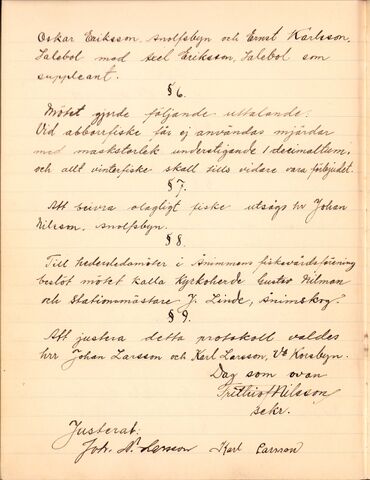 Oskar Eriksson, Snolfsbyn och Ernst Karlsson,
Salebol med Axel Eriksson, Salebol som
suppleant.
§ 6.
Mötet gjorde följande uttalande:
Vid abborrfiske får ej användas mjärdar
med maskstorlek understigande 1 decimaltum;
och allt vinterfiske skall tills vidare vara förbjudet.
§ 7.
Att beivra olagligt fiske utsågs hr Johan
Nilsson, Snolfsbyn.
§ 8.
Till hedersledamöter i Änimmens fiskevårdsförening
beslöt mötet kalla Kyrkoherde Gustav Nilman
och Stationsmästare J. Linde, Ånimskog.
§ 9.
Att justera detta protokoll valdes
hrr Johan Larsson och Karl Larsson, Korsbyn.
Dag som ovan
Frithiof Nilsson
sekr.
Justerat:
Joh. Larsson Karl Larsson